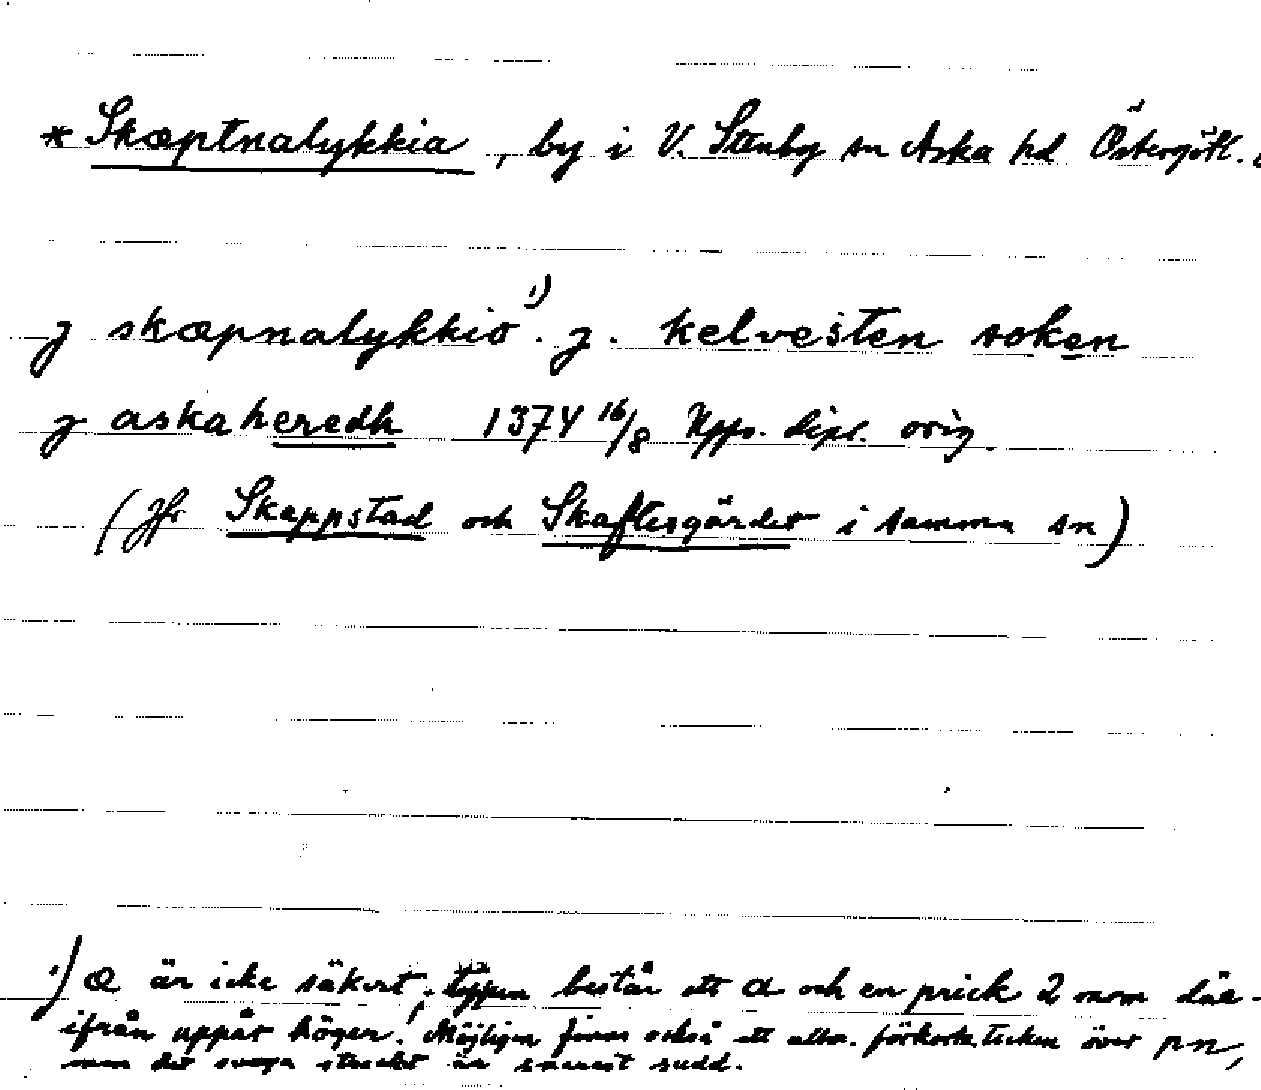 * Skæptnalykkia, by i V. Stenby sn Aska hd Östergötl.
j skæpnalykkio 1). j. kelvesten soken
j askaheredh 1374 16/8 Upps. dipl. orig.
(Jfr Skeppstad och Skaftesgärdet i samma sn)
1) æ är icke säkert, typen består ett a och en prick 2 mm där-
ifrån uppåt höger. Möjligen finns också ett allm. förkortn.tecken över pn,
men det svaga strecket är snarast sudd.